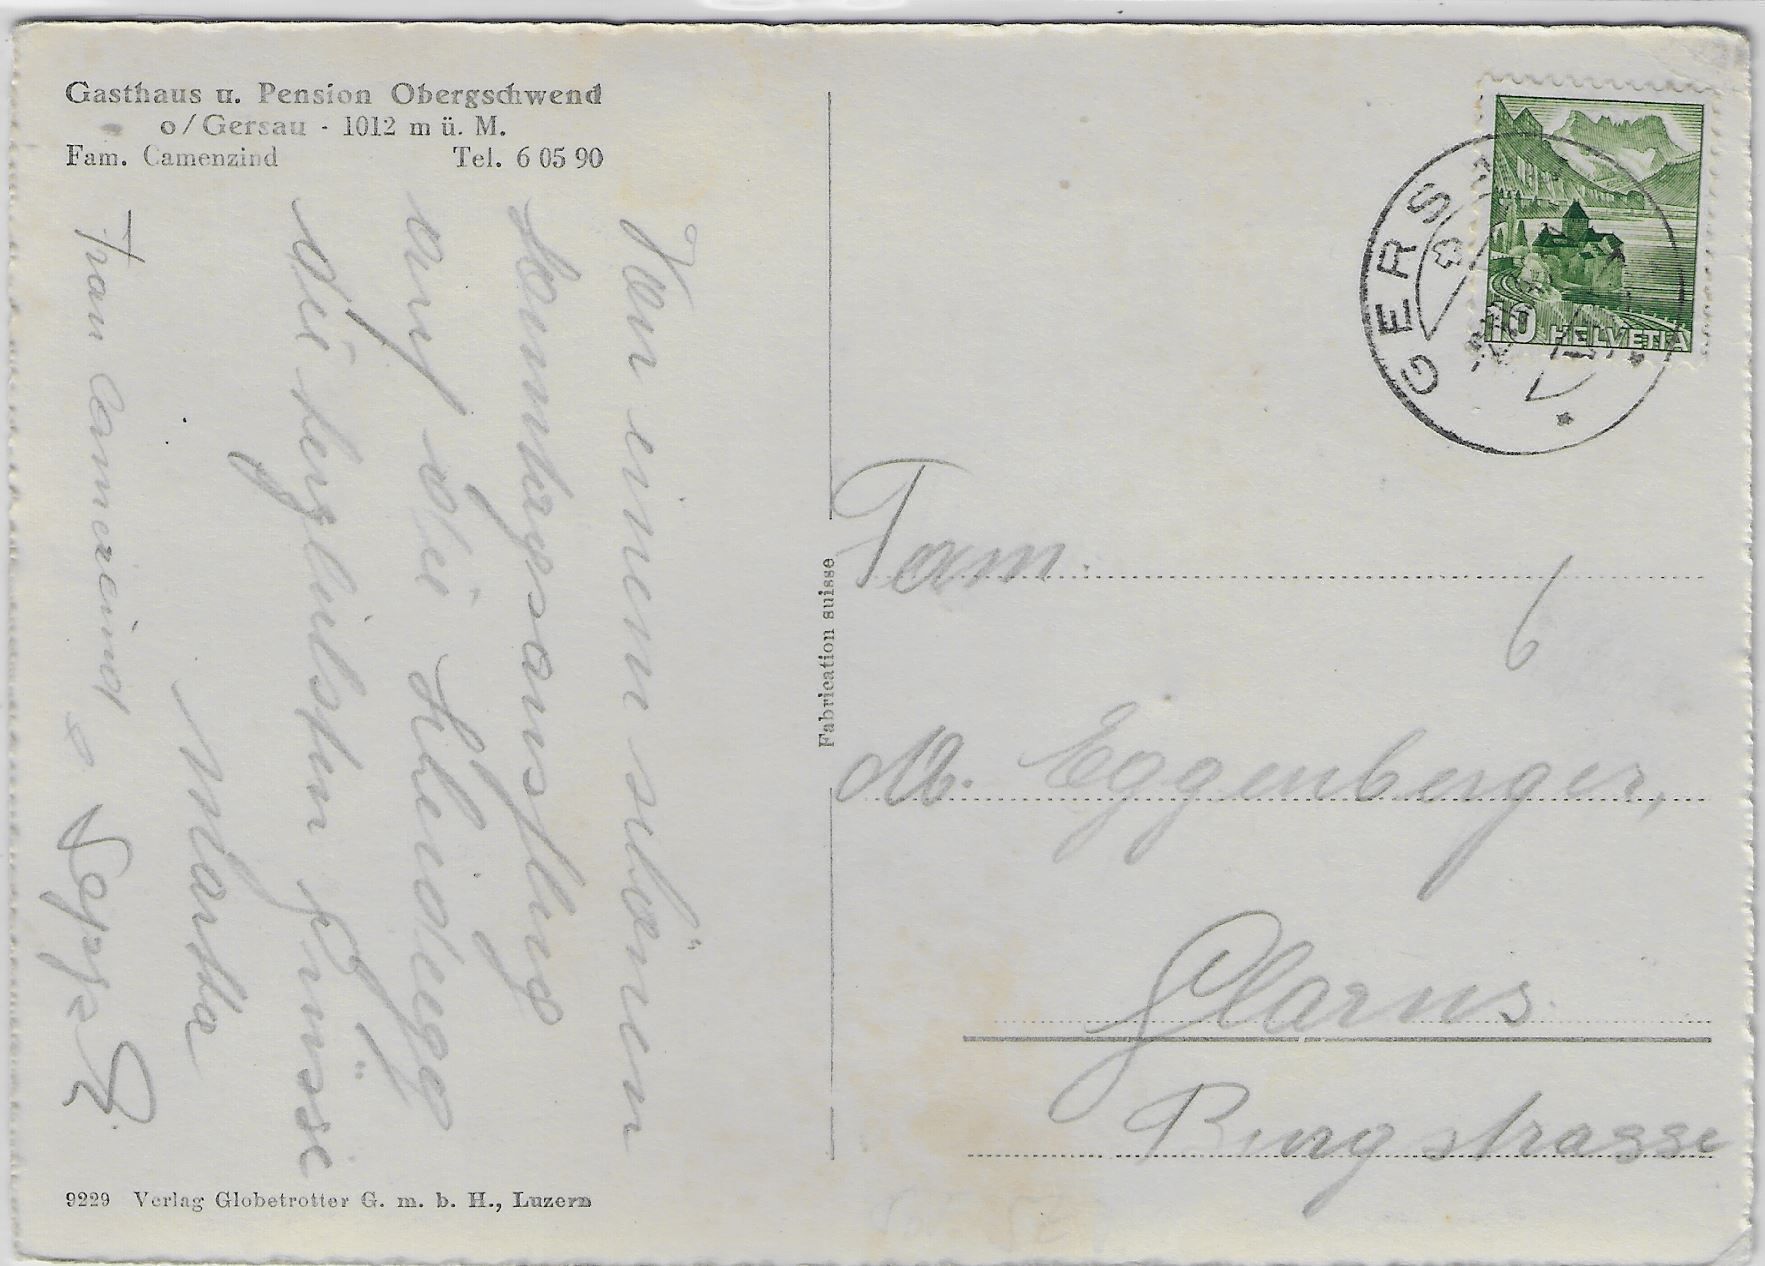 Gasthaus u. Pension Obergschwend
o/Gersau - 1012 m ü. M.
Fam. Camenzind Tel. 6 05 90
Von einem schönen
Sonntagsausflug
auf die Scheidegg
die herzlichsten Grüsse
Martha
Frau Camenzind
Seppi
9229 Verlag Globetrotter G. m. b. H., Luzern
Fabrication suisse
GERS
10 HELVETIA
Fam.
M. Eggenberger,
Glarus
Burgstrasse